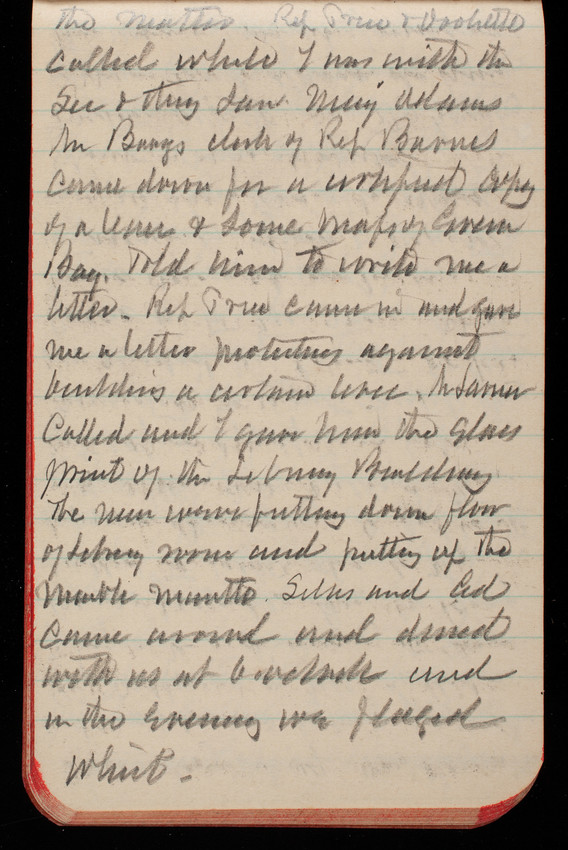 the matter. Rep Price &
called while I was with the
Sec & they saw Maj Adams
Mr Boogs clerk of Rep Barnes
came down for a copy
of a & some maps of Green
Bay. Told him to write me a
letter. Rep Price came in and gave
me a letter protesting against
building a certain levee. Mr
called and I gave him the glass
print of the Library Building
The men were putting down floor
of Library room and putting up the
marble mantle. Silas and Ed
came around and dined
with us at 6 oclock and
in the evening we played
Whist.